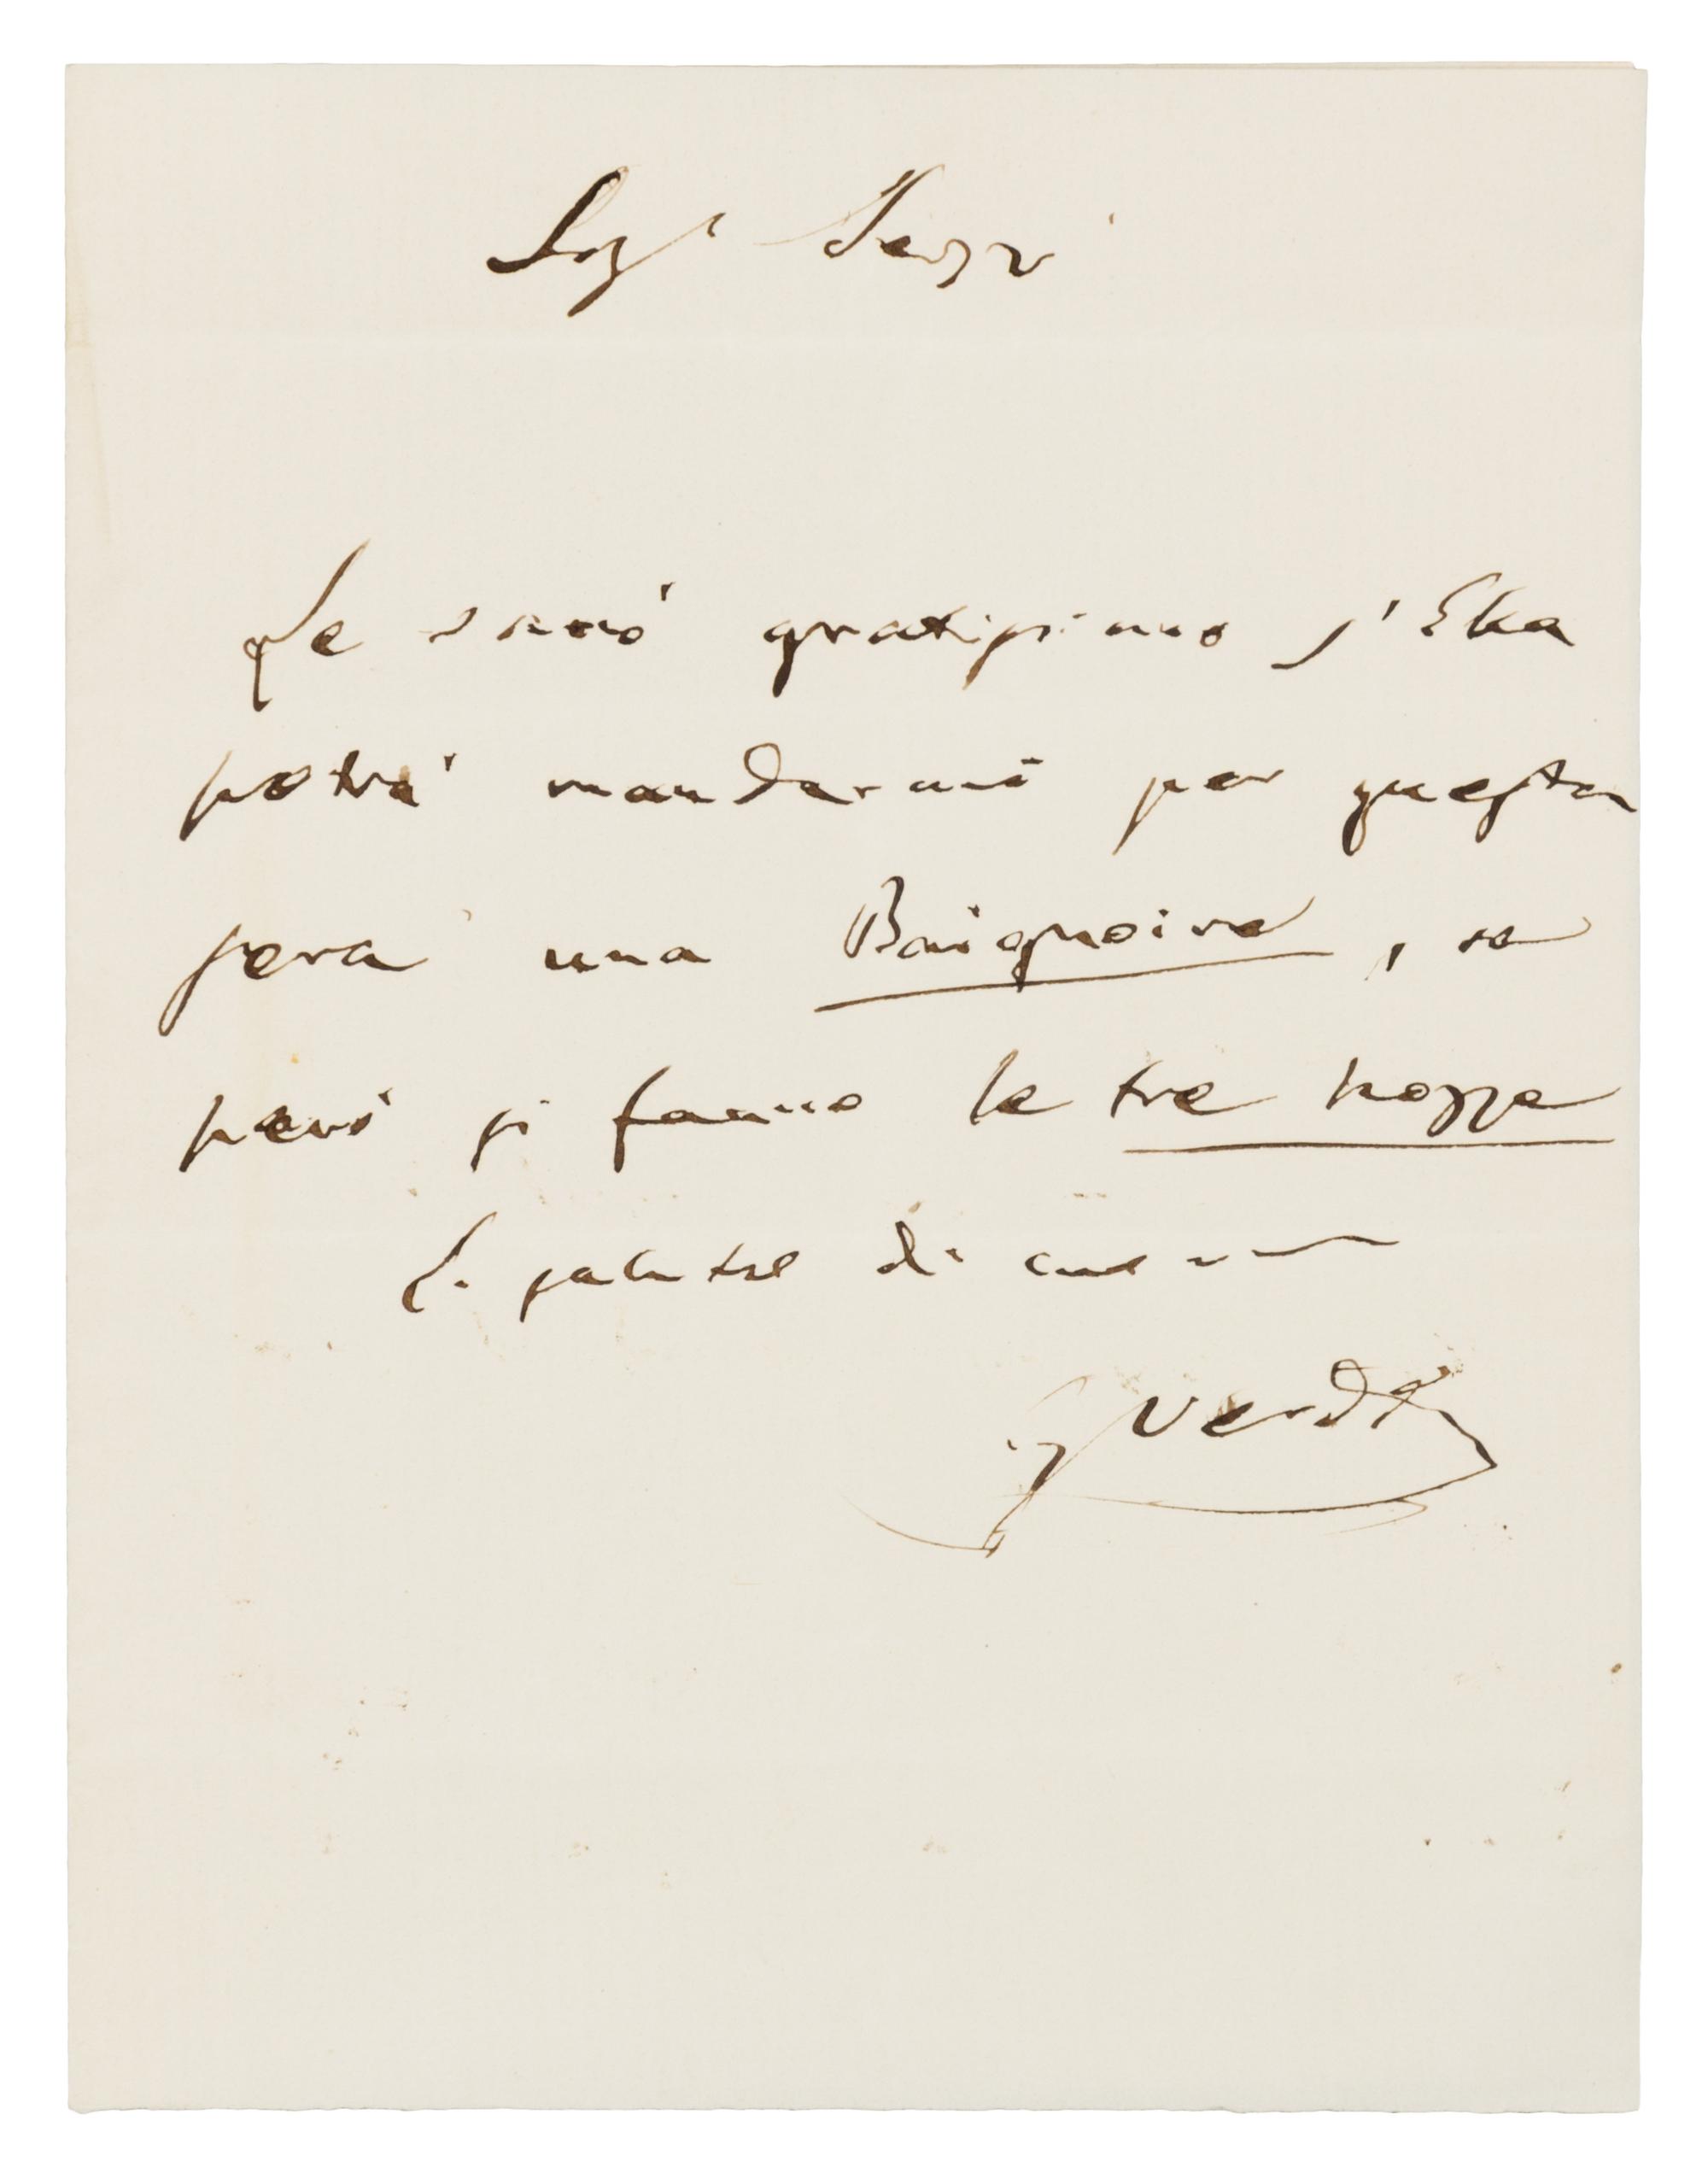 Sigr
Le sarò gratissimo s'Ella
potrà mandarmi per questa
sera una Baignoire, se
però si fanno le tre nozze
La saluto di cuore
G Verdi